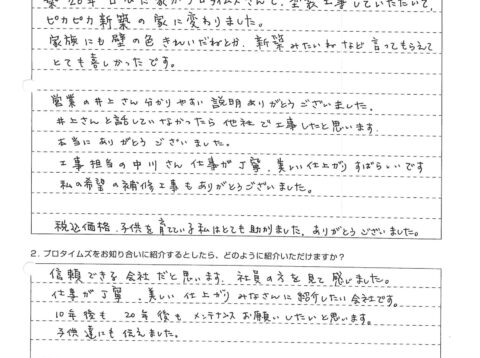 築20年 日な に家が プロタイムズさんで、塗装工事していただいて、
ピカピカ新築の家に変わりました。
家族にも壁の色きれいだねとか、新築みたいねなど言ってもらえて
とても喜しかったです。
営業の井上さん分かりやすい説明ありがとうございました。
井上さんと話していなかったら他社で工事したと思います。
本当にありがとうございました。
工事担当の中川さん仕事が丁寧、美しい仕上がりすばらしいです
私の希望の補修工事もありがとうございました。
税込価格、子供を育てている私はとても助かりました。ありがとうございました。
2. プロタイムズをお知り合いに紹介するとしたら、どのように紹介いただけますか？
信頼できる会社だと思います。社員の方を見て感じました。
仕事が丁寧、美しい仕上がりみなさんに紹介したい会社です。
10年後も20年後もメンテナンスお願いしたいと思います。
子供達にも伝えました。